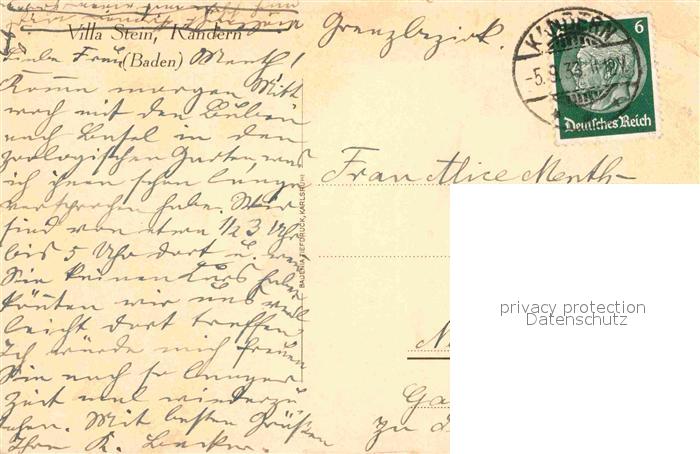 Villa Stein, Kandern
(Baden)
Liebe Frau Menth!
Komme morgen Mitt
woch mit den Buben
nach Basel in den
zoologischen Garten, was
ich ihnen schon lange
versprochen habe. Wir
sind von etwa 1/2 3 Uhr
bis 5 Uhr dort u. wenn
Sie keinen Kurs haben
könnten wir uns viel
leicht dort treffen.
Ich würde mich freuen
Sie nach so langer
Zeit mal wiederzu
sehen. Mit besten Grüßen
Ihre K. Becker.
Grenzbezirk.
KANDERN
-5.9.33
6
Deutsches Reich
Frau Alice Menth-
BADENIA TIEFDRUCK, KARLSRUHE
N
Ga
zu
privacy protection
Datenschutz